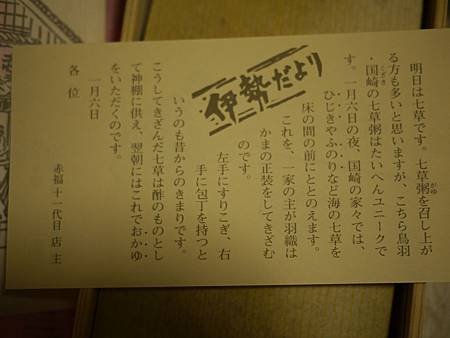 伊勢だより
明日は七草です。七草粥を召し上が
る方も多いと思いますが、こちら鳥羽
・国崎の七草粥はたいへんユニークで
す。一月六日の夜、国崎の家々では、
ひじきやふのりなど海の七草を
床の間の前にととのえます。
これを、一家の主が羽織は
かまの正装をしてきざむ
のです。
左手にすりこぎ、右
手に包丁を持つと
いうのも昔からのきまりです。
こうしてきざんだ七草は酢のものとし
て神棚に供え、翌朝にはこれでおかゆ
をいただくのです。
一月六日
赤福十一代目店主
各位